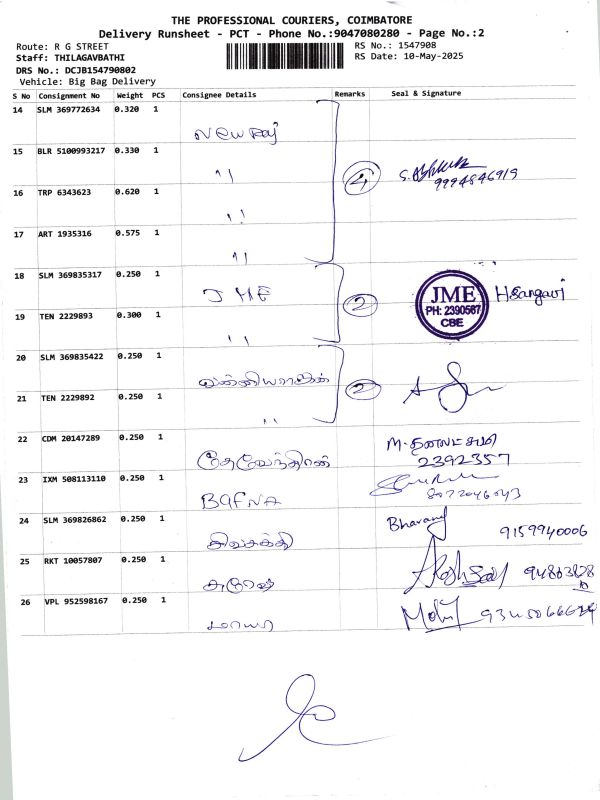 THE PROFESSIONAL COURIERS, COIMBATORE
Delivery Runsheet - PCT - Phone No.:9047080280 - Page No.:2
Route: R G STREET
RS No.: 1547908
Staff: THILAGAVBATHI
RS Date: 10-May-2025
DRS No.: DCJB154790802
Vehicle: Big Bag Delivery
S No Consignment No Weight PCS Consignee Details Remarks Seal & Signature
14 SLM 369772634 0.320 1
New Raj
15 BLR 5100993217 0.330 1
" 4 9994846919
16 TRP 6343623 0.620 1
"
17 ART 1935316 0.575 1
"
18 SLM 369835317 0.250 1
JME 2 JME H Sangavi
PH: 2390567
CBE
19 TEN 2229893 0.300 1
"
20 SLM 369835422 0.250 1
2
21 TEN 2229892 0.250 1
"
22 CDM 20147289 0.250 1
தேவேந்திரன் 2392357
23 IXM 508113110 0.250 1
BAFNA
24 SLM 369826862 0.250 1
சிவசக்தி Bharani 9159940006
25 RKT 10057807 0.250 1
சுரேஷ்
26 VPL 952598167 0.250 1
மாயா